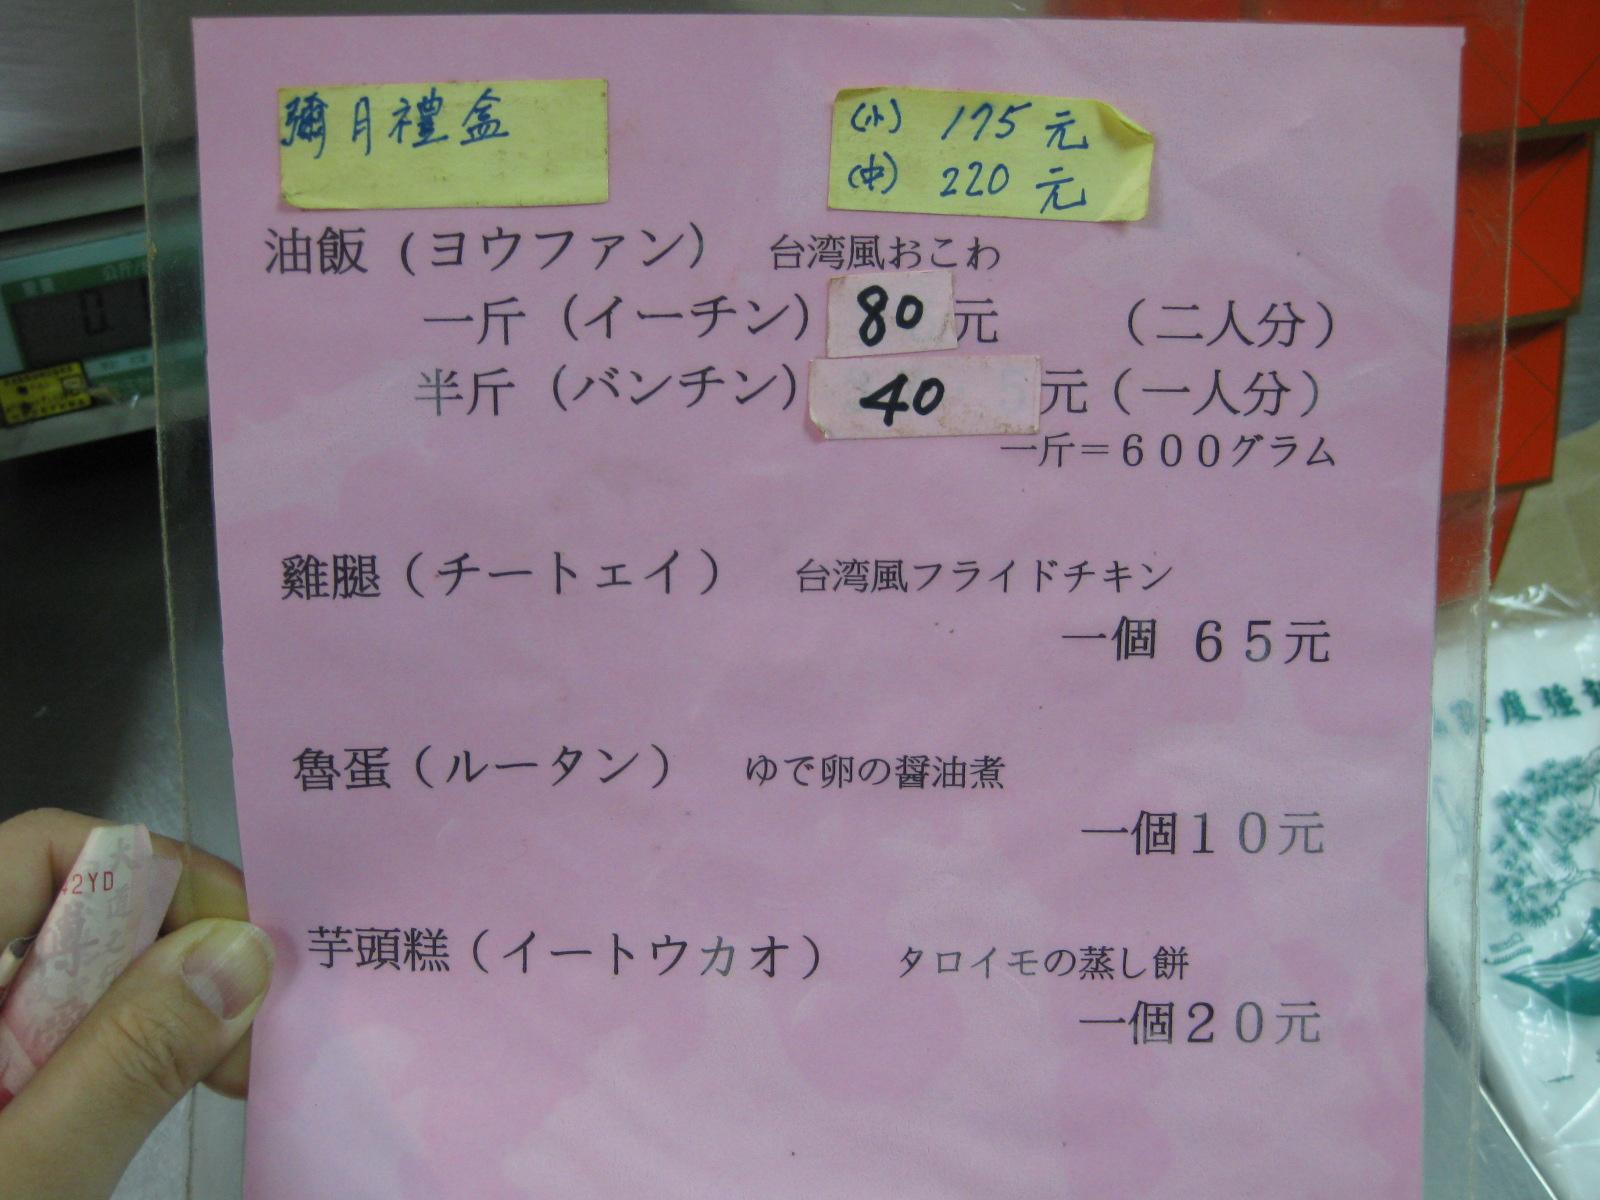 彌月禮盒
(小) 175元
(中) 220元
油飯(ヨウファン) 台湾風おこわ
一斤(イーチン) 80元 (二人分)
半斤(バンチン) 40 元(一人分)
一斤=600グラム
雞腿(チートェイ) 台湾風フライドチキン
一個 65元
魯蛋(ルータン) ゆで卵の醤油煮
一個10元
芋頭糕(イートウカオ) タロイモの蒸し餅
一個20元
42YD